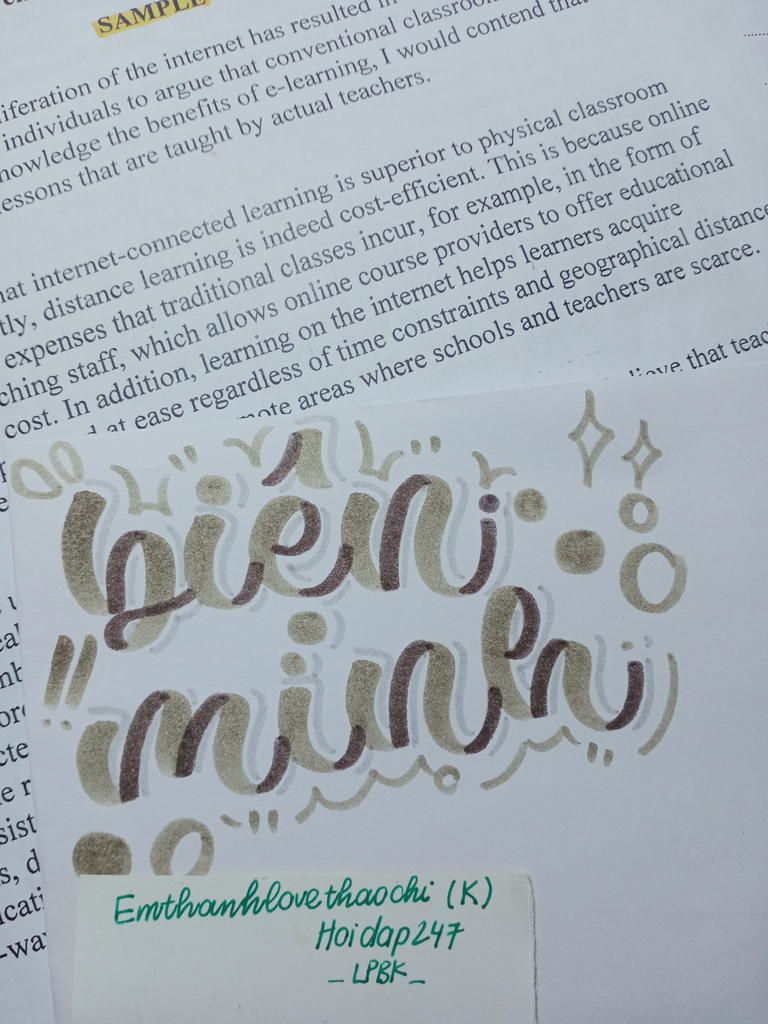 SAMPLE
iferation of the internet has resulted in
individuals to argue that conventional classroo
nowledge the benefits of e-learning, I would contend tha
essons that are taught by actual teachers.
hat internet-connected learning is superior to physical classroom
tly, distance learning is indeed cost-efficient. This is because online
expenses that traditional classes incur, for example, in the form of
ching staff, which allows online course providers to offer educational
cost. In addition, learning on the internet helps learners acquire
d at ease regardless of time constraints and geographical distance
mote areas where schools and teachers are scarce.
lieve that teac
biên
minh
Emthanhlovethaochi (K)
Hoidap247
_LPBK_